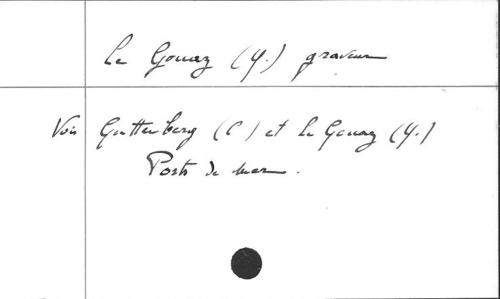 Le Gouaz (Y.) graveur
Voir Guttenberg (C) et Le Gouaz (Y.)
Ports de mer.